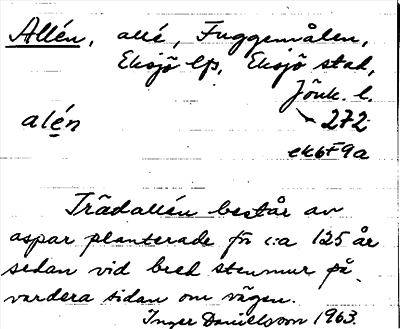 Allén, allé, Fuggemålen,
Eksjö lfs, Eksjö stad,
Jönk. l.
alén 272
ek6F9a
Trädallén består av
aspar planterade för c:a 125 år
sedan vid bred stenmur på
vardera sidan om vägen.
Inger Danielsson 1963.